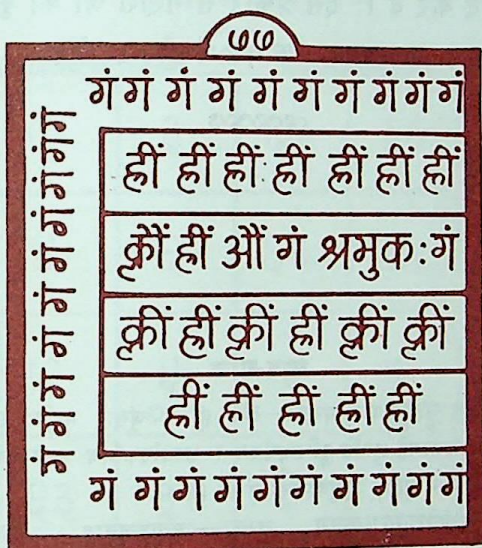 ७७
गं गं गं गं गं गं गं गं गं गं
गं गं गं गं गं गं गं गं गं गं
ह्रीं ह्रीं ह्रीं ह्रीं ह्रीं ह्रीं ह्रीं
क्रौं ह्रीं औं गं श्रमुक:गं
क्रीं ह्रीं क्रीं ह्रीं क्रीं क्रीं
ह्रीं ह्रीं ह्रीं ह्रीं ह्रीं
गं गं गं गं गं गं गं गं गं गं